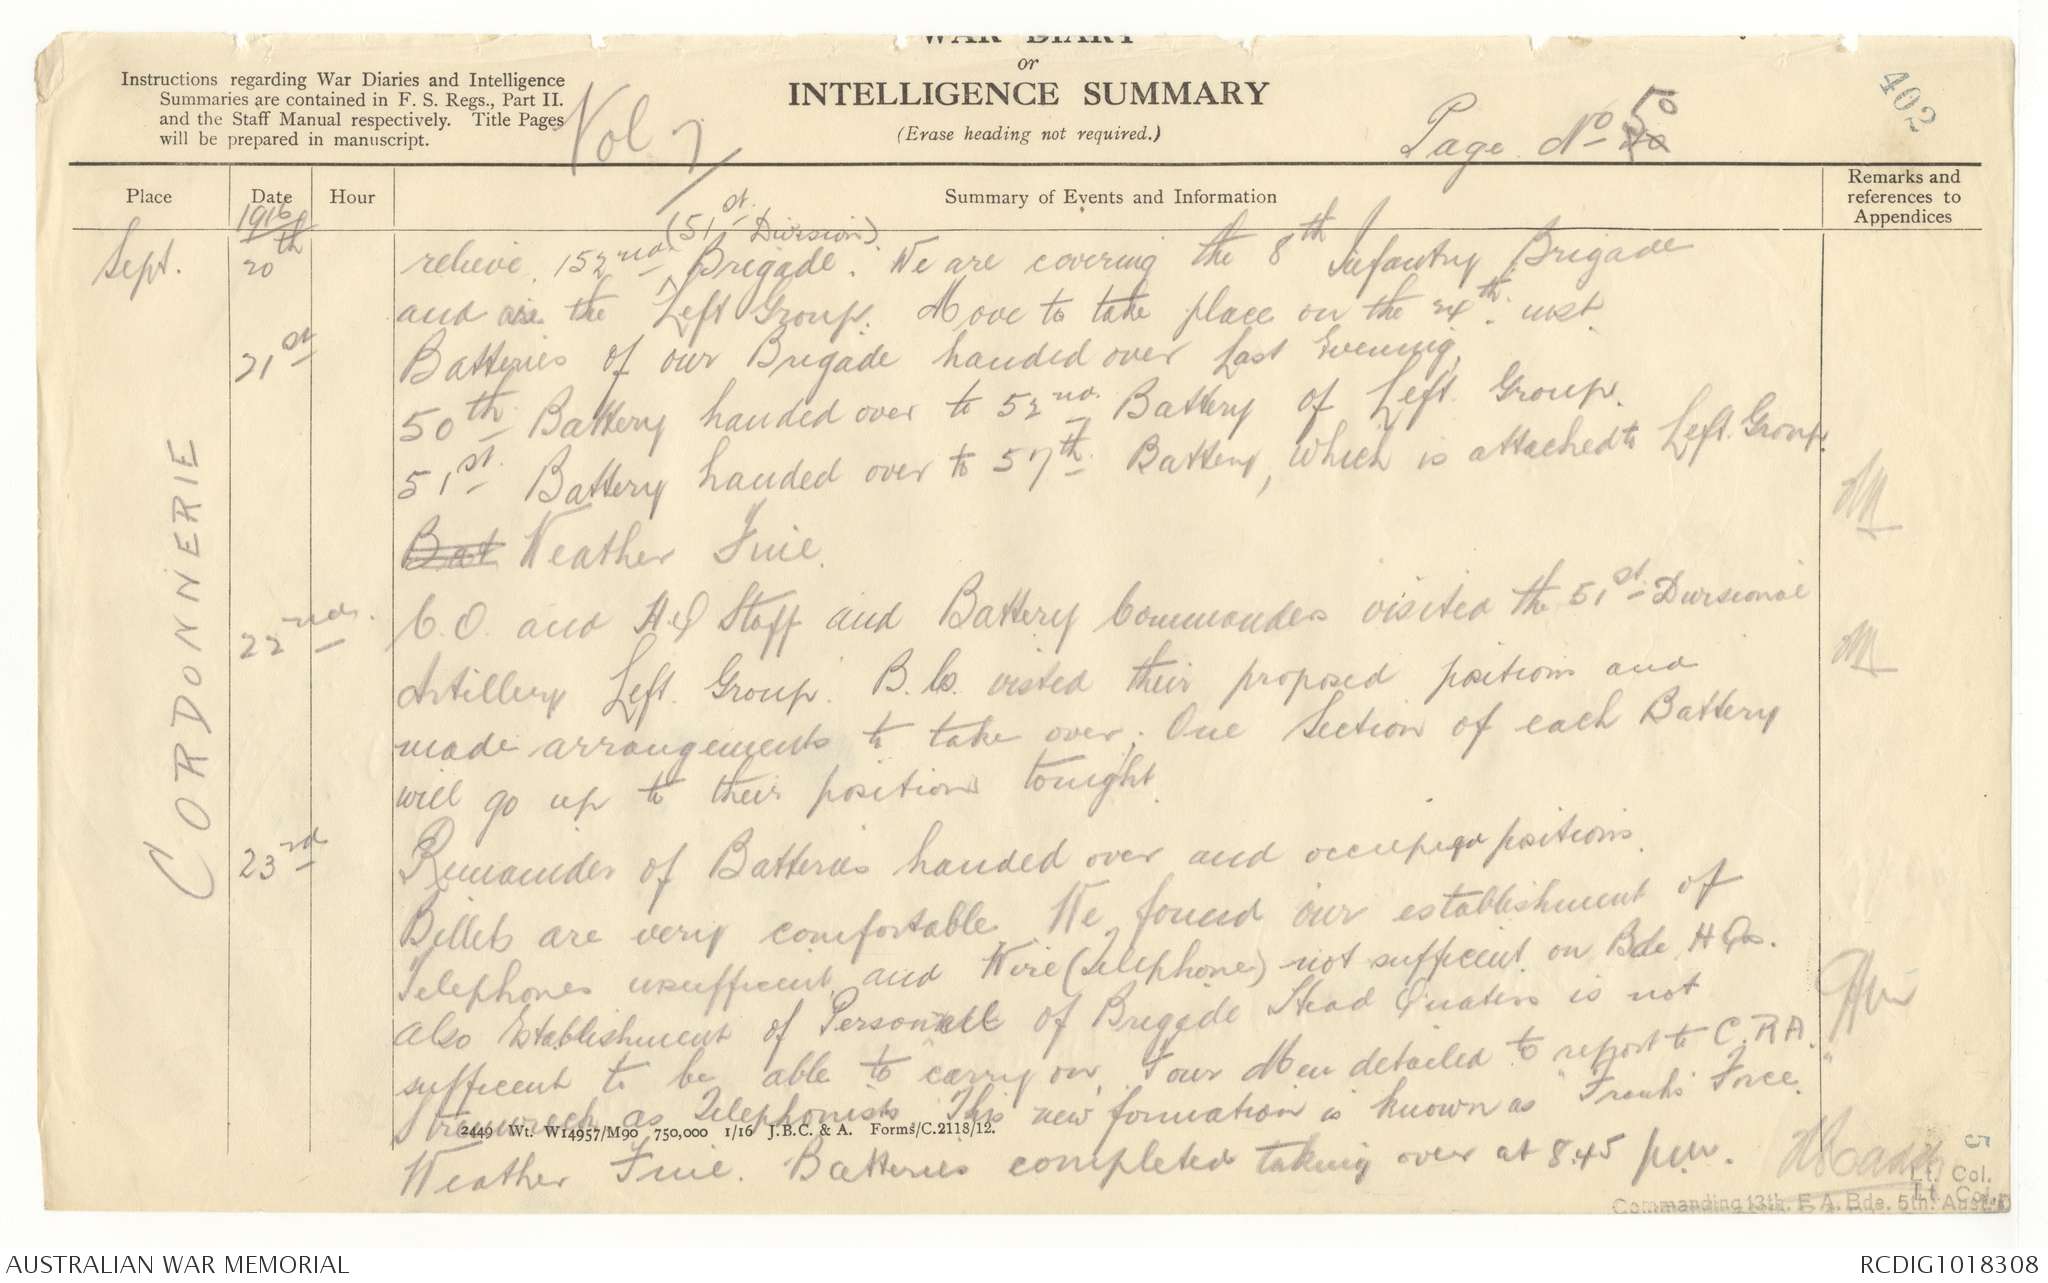 WAR DIARY
or
INTELLIGENCE SUMMARY
(Erase heading not required.)
Instructions regarding War Diaries and Intelligence
Summaries are contained in F. S. Regs., Part II.
and the Staff Manual respectively. Title Pages
will be prepared in manuscript.
Vol 7
Page No 50
402
Place
Date
Hour
Summary of Events and Information
Remarks and
references to
Appendices
1916
CORDONNERIE
(51st Division)
Sept. 20th relieve 152nd Brigade. We are covering the 8th Infantry Brigade
and are the Left Group. Move to take place on the 24th inst.
21st Batteries of our Brigade handed over Last Evening,
50th Battery handed over to 52nd Battery of Left Group.
51st Battery handed over to 57th Battery, which is attached to Left Group.
Bat Weather Fine.
22nd C.O. and HQ Staff and Battery Commanders visited the 51st Divisional
Artillery Left Group. B.Cs. visted their proposed positions and
made arrangements to take over. One Section of each Battery
will go up to their positions tonight.
23rd Remainder of Batteries handed over and occupied positions.
Billets are very comfortable. We found our establishment of
Telephones insufficient and Wire (Telephone) not sufficient on Bde HQs.
Also Establishment of Personell of Brigade Head Quaters is not
sufficent to be able to carry on. Four Men detailed to report to C.R.A.
as Telephonists. This new formation is known as "Franks Force."
Weather Fine. Batteries completed taking over at 8.45 pm.
2449 Wt. W14957/M90 750,000 1/16 J.B.C. & A. Forms/C.2118/12.
5
Lt. Col.
Lt. Col.
Commanding 13th. F.A. Bde. 5th. Aust. D
AUSTRALIAN WAR MEMORIAL
RCDIG1018308